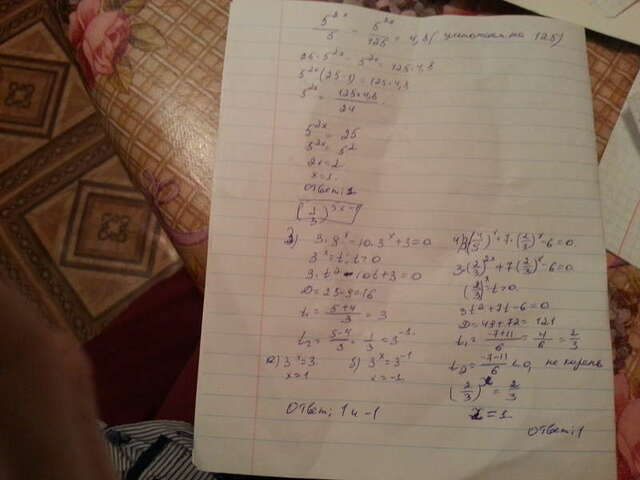 5^2x/5 - 5^2x/125 = 4,8 (умножаем на 125)
25·5^2x - 5^2x = 125·4,8
5^2x(25-1) = 125·4,8
5^2x = 125·4,8/24
5^2x = 25
5^2x = 5^2
2x=2
x=1.
Ответ: 1
3) 3·9^x - 10·3^x + 3 = 0
3^x = t; t>0
3·t^2 - 10t + 3 = 0
D = 25-9 = 16
t1 = 5+4/3 = 3
t2 = 5-4/3 = 1/3 = 3^-1.
а) 3^x = 3. б) 3^x = 3^-1
x=1 x=-1
Ответ: 1 и -1
4) 3(4/9)^x + 7·(2/3)^x - 6 = 0.
3·(2/3)^2x + 7(2/3)^x - 6 = 0.
(2/3)^x t>0.
3t^2 + 7t - 6 = 0
D = 49+72 = 121
t1 = -7+11/6 = 4/6 = 2/3
t2 = -7-11/6 < 0, не корень
(2/3)^x = 2/3
x = 1
Ответ: 1